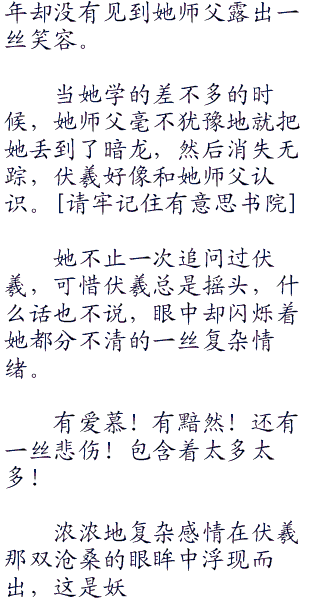 年却没有见到她师父露出一
丝笑容。
当她学的差不多的时
候，她师父毫不犹豫地就把
她丢到了暗龙，然后消失无
踪，伏羲好像和她师父认
识。[请牢记住有意思书院]
她不止一次追问过伏
羲，可惜伏羲总是摇头，什
么话也不说，眼中却闪烁着
她都分不清的一丝复杂情
绪。
有爱慕！有黯然！还有
一丝悲伤！包含着太多太
多！
浓浓地复杂感情在伏羲
那双沧桑的眼眸中浮现而
出，这是妖